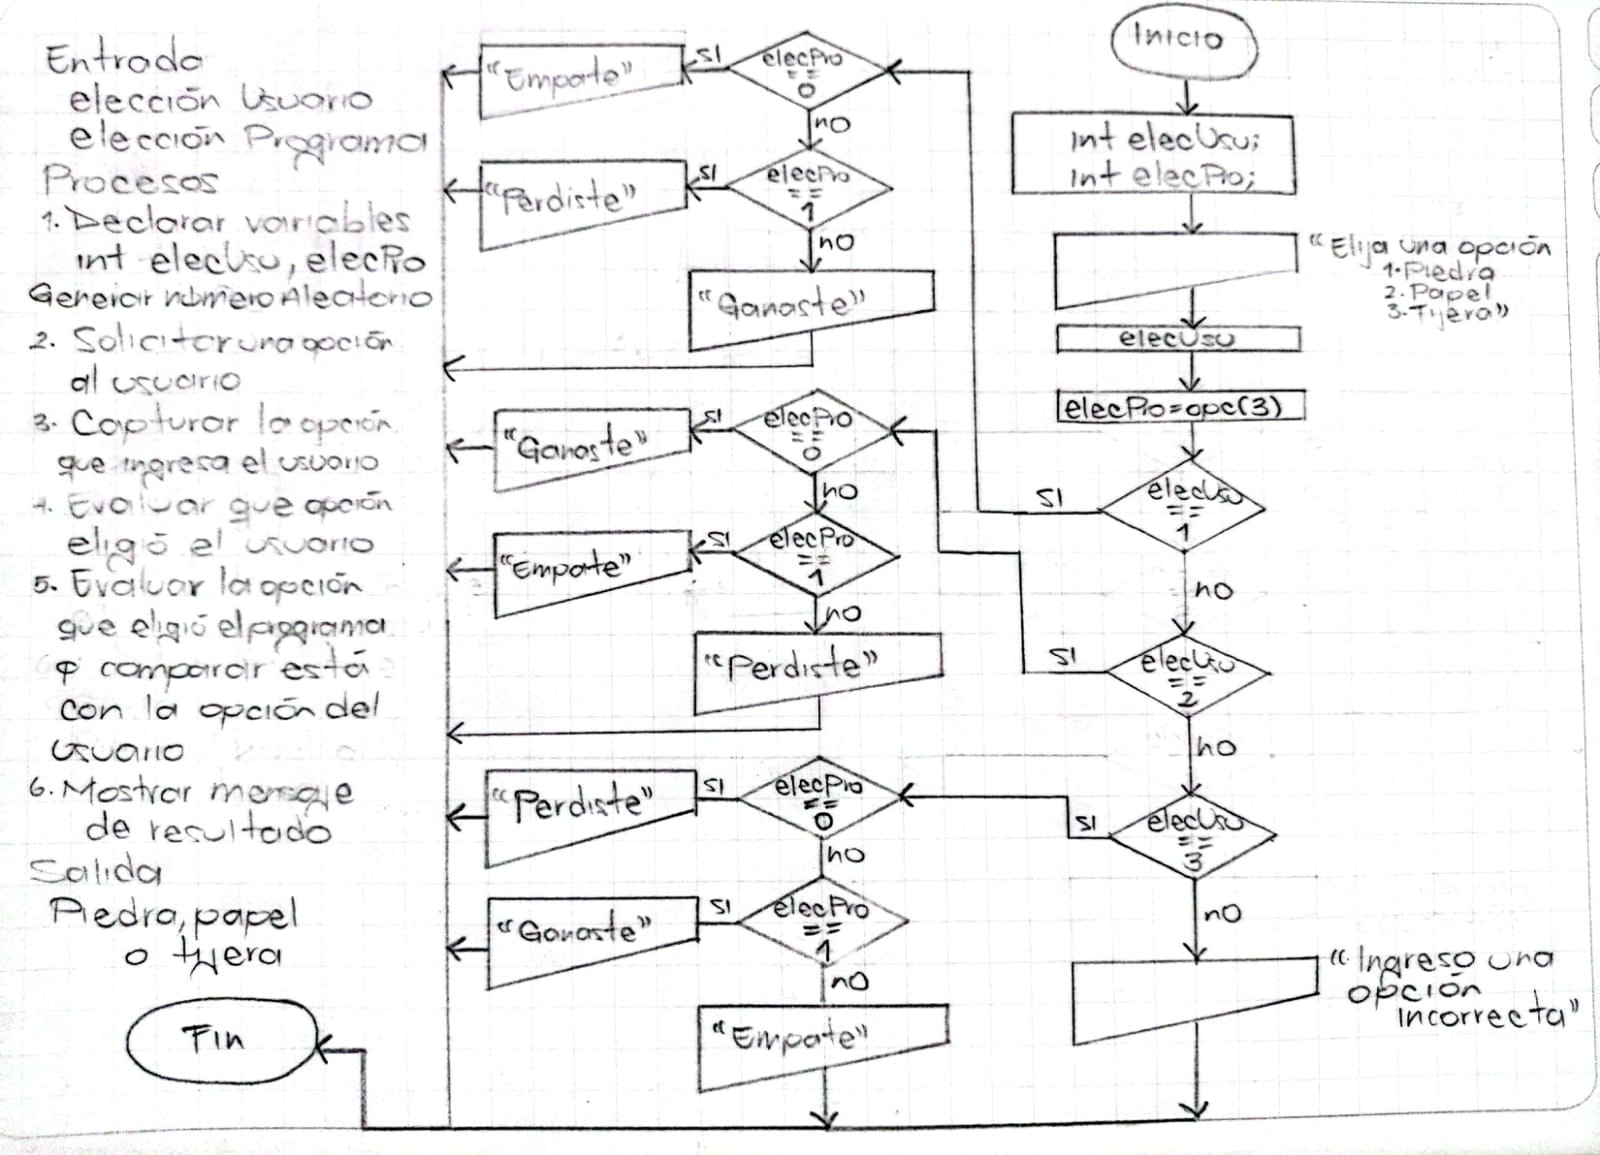 Entrada
elección Usuario
elección Programa
Procesos
1. Declarar variables
int elecUsu, elecPro
Generar número Aleatorio
2. Solicitar una opción
al usuario
3. Capturar la opción
que ingresa el usuario
4. Evaluar que opción
eligió el usuario
5. Evaluar la opción
que eligió el programa
y comparar está
con la opción del
usuario
6. Mostrar mensaje
de resultado
Salida
Piedra, papel
o tijera
Fin
Inicio
int elecUsu;
int elecPro;
"Elija una opción
1. Piedra
2. Papel
3. Tijera"
elecUsu
elecPro=opc(3)
elecUsu
==
1
SI
no
elecPro
==
0
SI
"Empate"
no
elecPro
==
1
SI
"Perdiste"
no
"Ganaste"
elecUsu
==
2
SI
no
elecPro
==
0
SI
"Ganaste"
no
elecPro
==
1
SI
"Empate"
no
"Perdiste"
elecUsu
==
3
SI
no
elecPro
==
0
SI
"Perdiste"
no
elecPro
==
1
SI
"Ganaste"
no
"Empate"
"Ingreso una
opción
incorrecta"